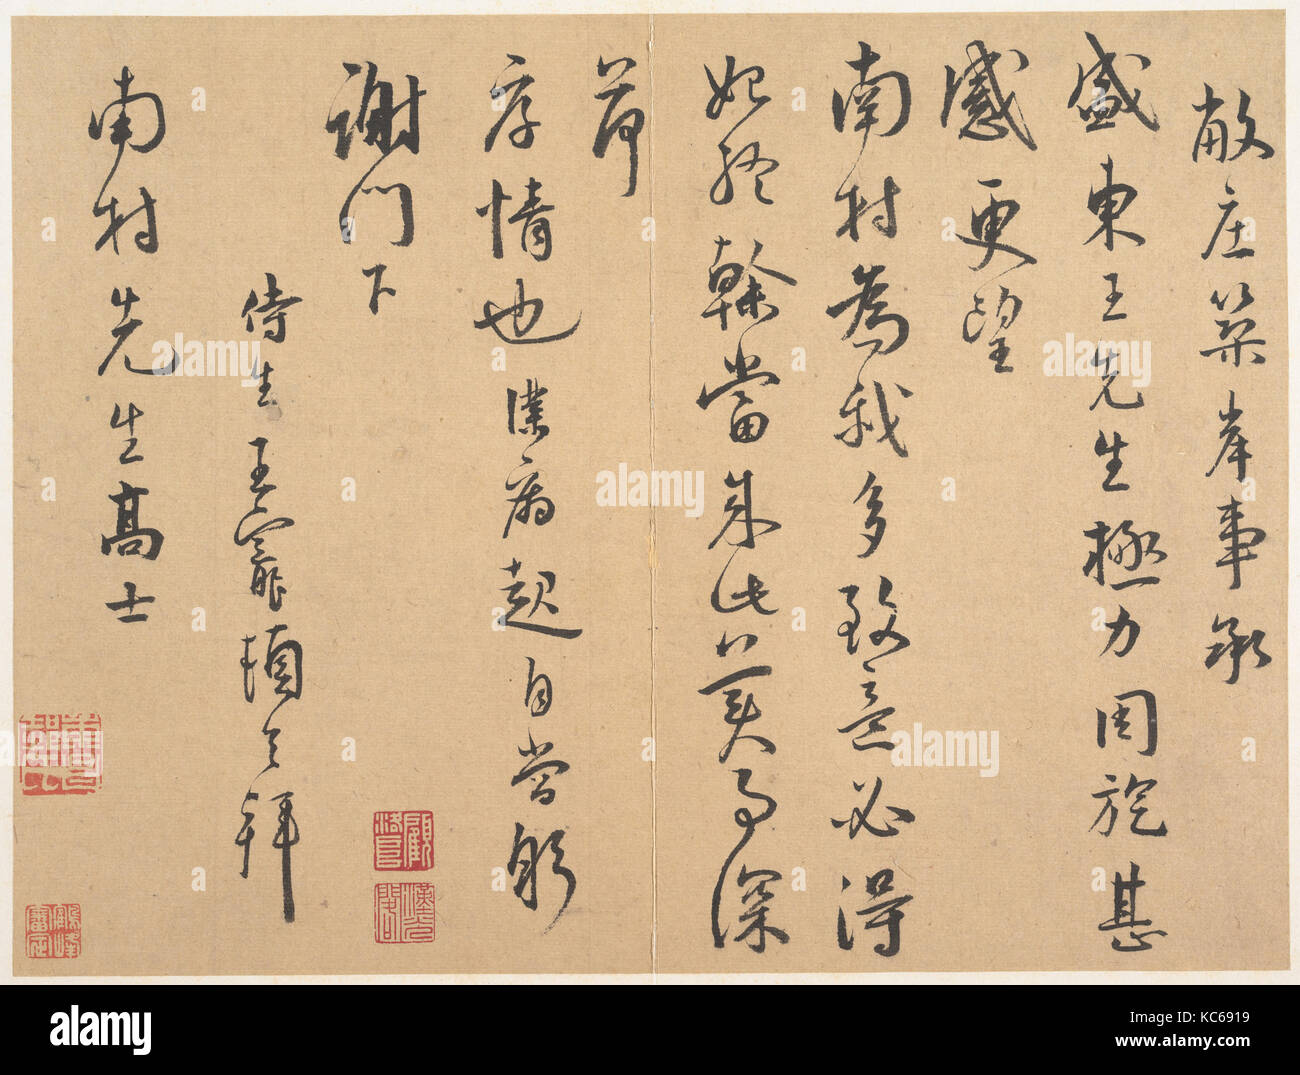 敝庄築岸事承
盛東王先生極力周旋甚
感更望
南村為我多致意必得
始終幹當成此美事深
荷
厚情也僕病起自當躬
謝門下
侍生王寵頓首拜
南村先生高士
alamy
Image ID: KC6919
www.alamy.com